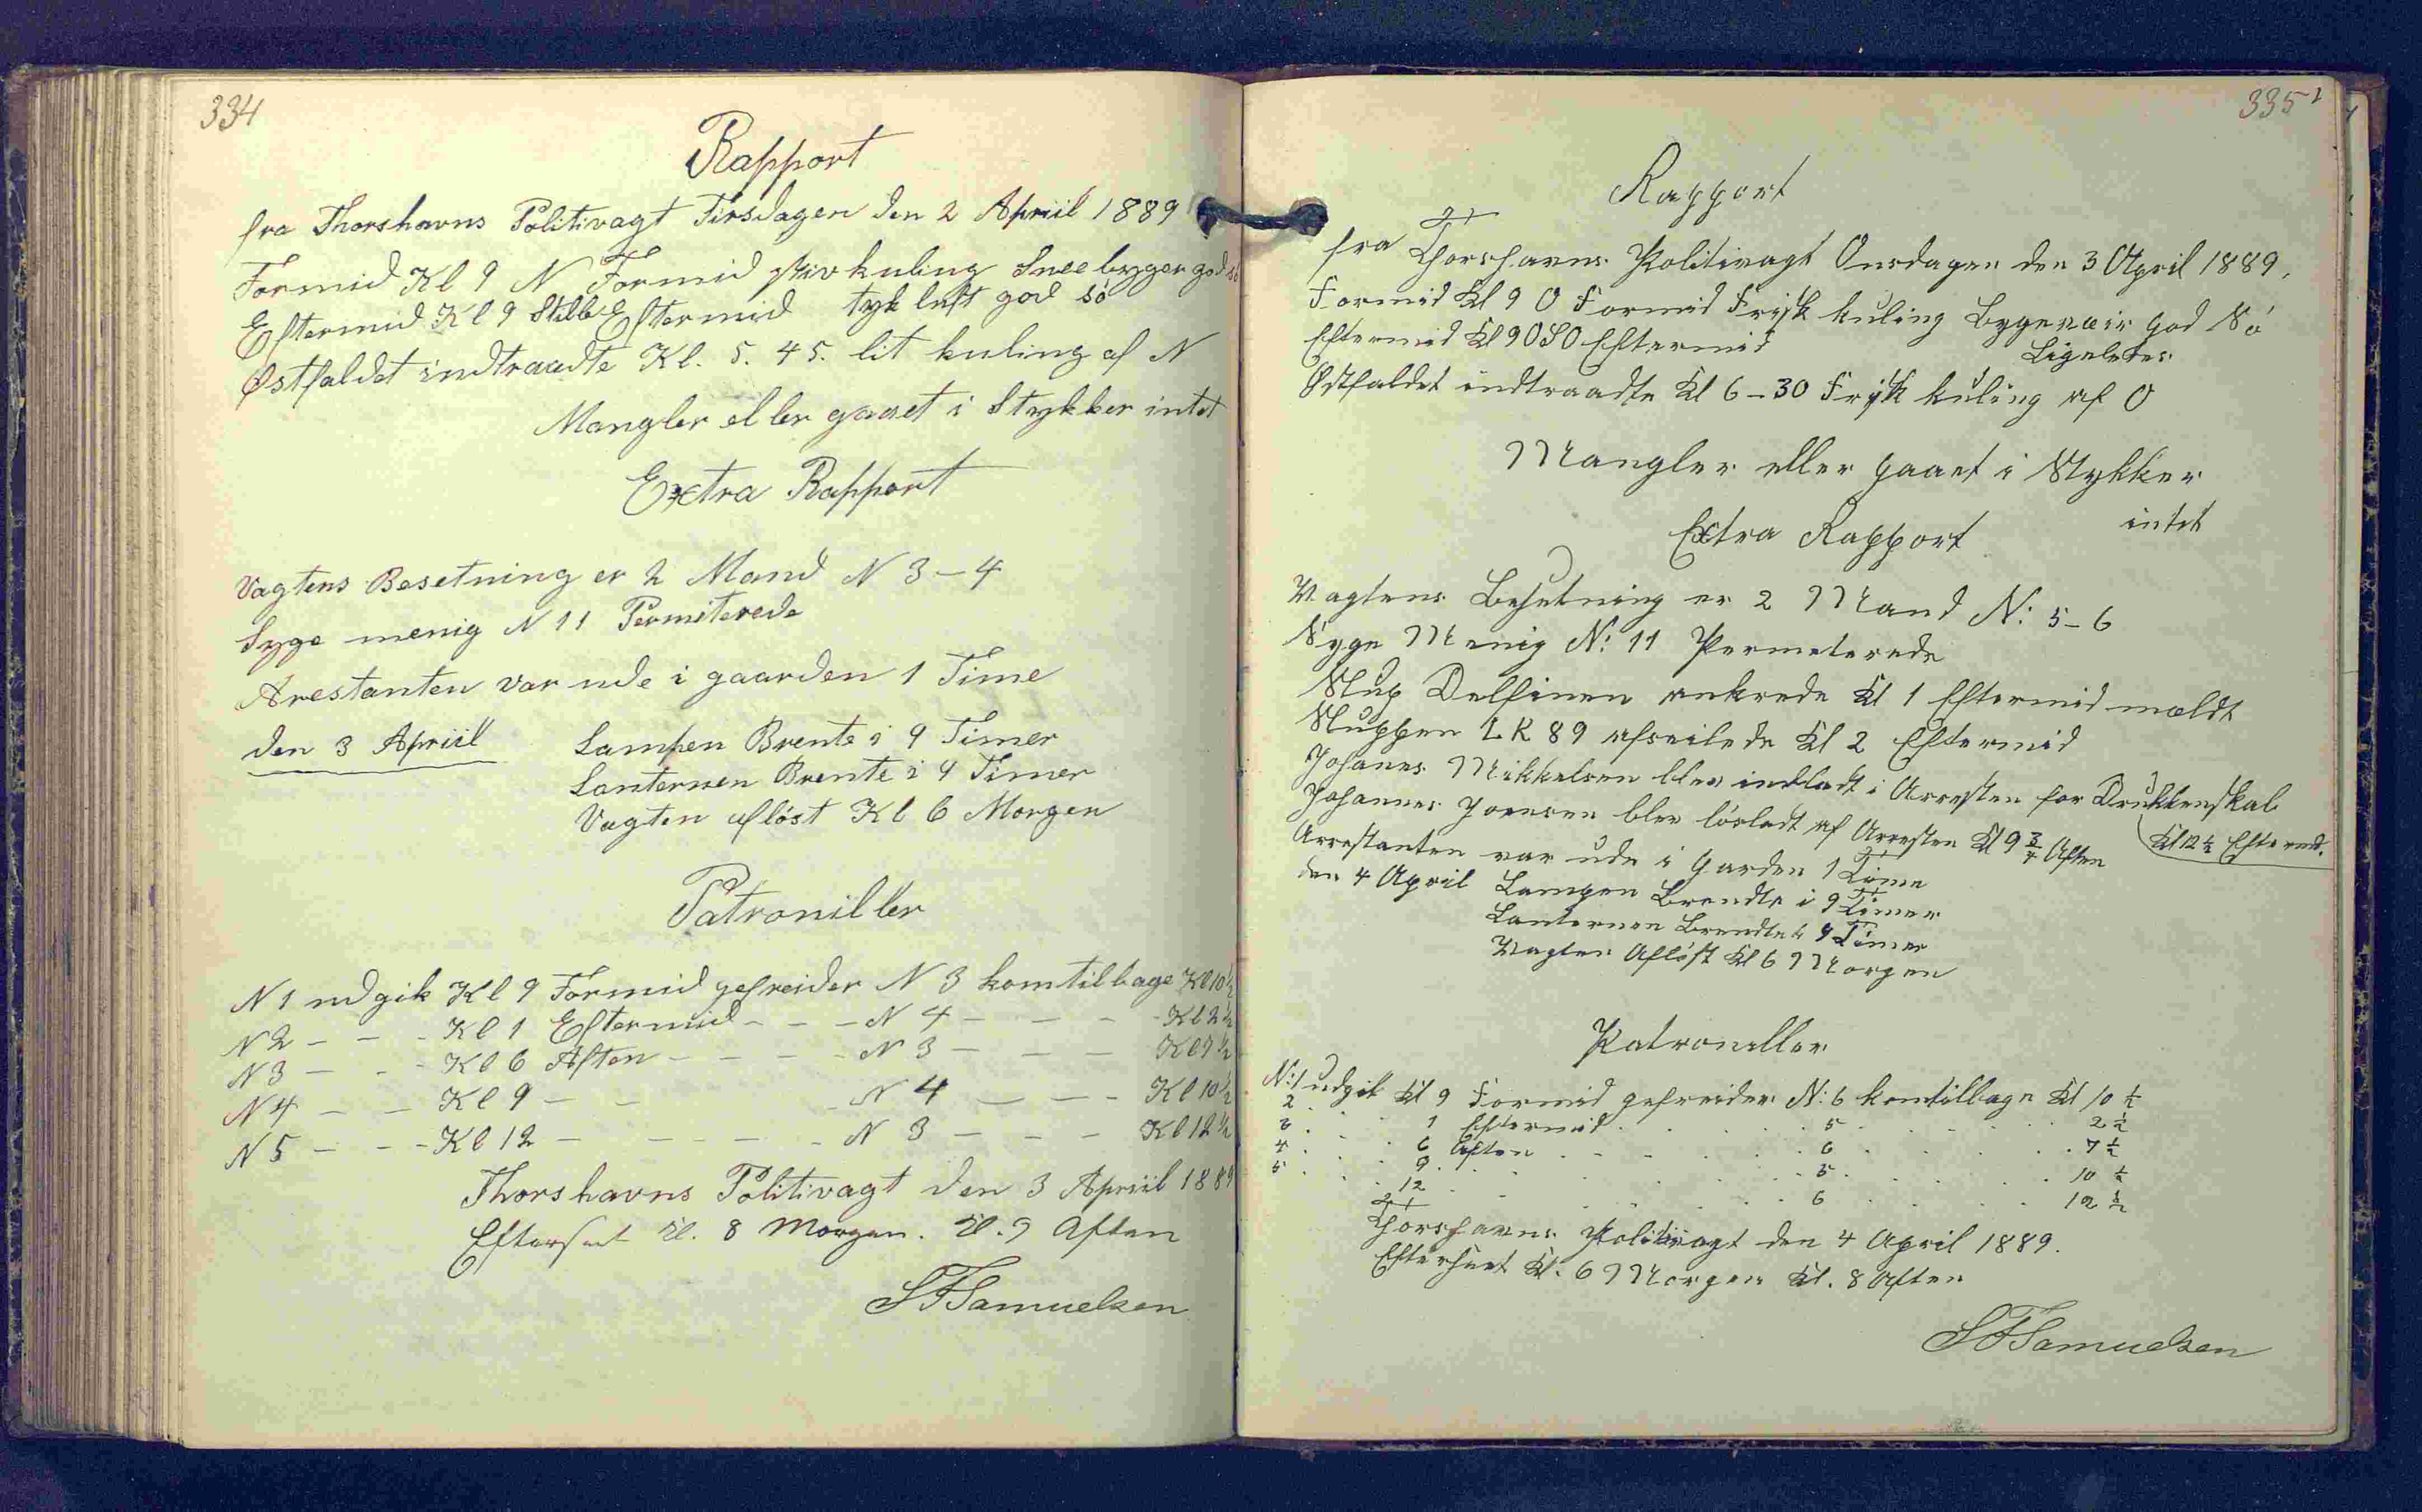 334
Rapport
fra Thorshavns Politivagt Tirsdagen den 2 Apriil 1889
Formid Kl 9 N Formid stiv kuling Sneebyger god sö
Eftermid Kl 9 Stille Eftermid tyk luft god sö
Østfaldet indtraadte Kl. 5. 45. lit kuling af N
Mangler eller gaaet i Stykker intet
Extra Rapport
Vagtens Besetning er 2 Mand N 3-4
Syge menig N 11 Permiterede
Arestanten var ude i gaarden 1 Time
den 3 Apriil Lampen Brente i 9 Timer
Lanternen Brente i 9 Timer
Vagten aflöst Kl 6 Morgen
Patroniller
N 1 udgik Kl 9 Formid gefreider N 3 kom tilbage Kl 10 1/2
N 2 - - - Kl 1 Eftermid - - - N 4 - - - Kl 2 1/2
N 3 - - - Kl 6 Aften - - - - N 3 - - - Kl 7 1/2
N 4 - - Kl 9 - - - N 4 - - - Kl 10 1/2
N 5 - - - Kl 12 - - - - N 3 - - - Kl 12 1/2
Thorshavns Politivagt den 3 Apriil 1889
Efterseet Kl. 8 Morgen. Kl. 9 Aften
SFSamuelsen
335
Rapport
fra Thorshavns Politivagt Onsdagen den 3 April 1889.
Formid Kl 9 O Formid Frisk kuling Bygeveir god Sö
Eftermid Kl 9 OSO Eftermid Ligeledes
Østfaldet indtraadte Kl 6-30 Frisk kuling af O
Mangler eller gaaet i Stykker
intet
Extra Rapport
Vagtens Besetning er 2 Mand N: 5-6
Syge Menig N: 11 Permeterede
Slup Delfinen ankrede Kl 1 Eftermid mældt
Sluppen LK 89 afseilede Kl 2 Eftermid
Johanes Mikkelsen blev indladt i Arresten for Drukkenskab
Kl 12 1/2 Eftermd.
Johannes Joensen blev lösladt af Arresten Kl 9 3/4 Aften
Arrestanten var ude i Garden 1 Time
den 4 April Lampen Brendte i 9 Timer
Lanternen Brendte i 9 Timer
Vagten Aflöst Kl 6 Morgen
Patroneller
N: 1 udgik Kl 9 Formid gefreider N: 6 kom tilbage Kl 10 1/2
2 . . . 1 Eftermid . . . . 5 . . . . 2 1/2
3 . . . 6 Aften . . . . 6 . . . . 7 1/2
4 . . . 9 . . . . 5 . . . . 10 1/2
5 . . . 12 . . . . 6 . . . . 12 1/2
Thorshavns Politivagt den 4 April 1889.
Efterseet Kl. 6 Morgen Kl. 8 Aften
SFSamuelsen